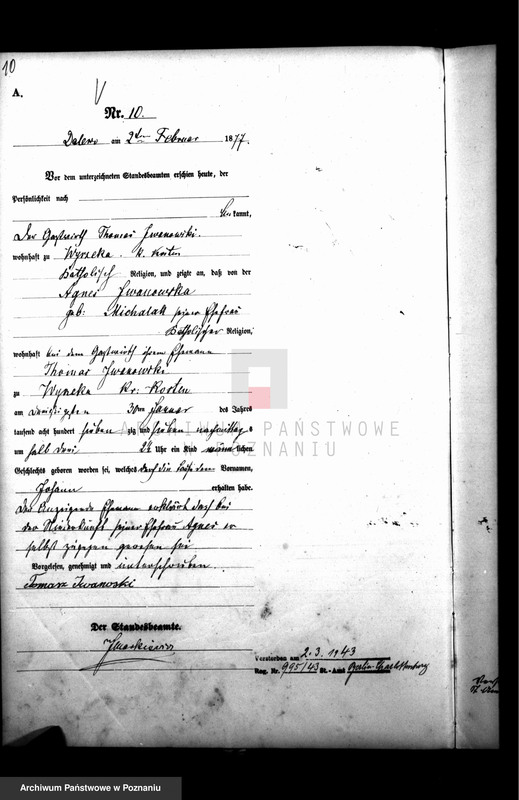 10
A.
Nr. 10.
Dalewo am 2ten Februar 1877.
Vor dem unterzeichneten Standesbeamten erschien heute, der
Persönlichkeit nach
kannt,
Der Gastwirth Thomas Iwanowski.
wohnhaft zu Wyrzeka. K. Kosten
katholisch Religion, und zeigte an, daß von der
Agnes Iwanowska
geb: Michalak seiner Ehefrau
katholischer Religion,
wohnhaft bei dem Gastwirth ihrem Ehemann
Thomas Iwanowski
zu Wyrzeka Kr: Kosten
am dreißigsten 30ten Januar des Jahres
tausend acht hundert sieben zig und sieben nachmittags
um halb drei 2½ Uhr ein Kind männlichen
Geschlechts geboren worden sei, welches Vornamen,
Johann erhalten habe.
Der Anzeigende Ehemann erklärt daß bei
der Niederkunft seiner Ehefrau Agnes er
selbst zugegen gewesen sei
Vorgelesen, genehmigt und unterschrieben.
Tomasz Iwanoski
Der Standesbeamte.
Verstorben am 2.3.1943
Reg. Nr. 995/43 St.-Amt Berlin-Charlottenburg
ARCHIWUM PAŃSTWOWE
W POZNANIU
Archiwum Państwowe w Poznaniu